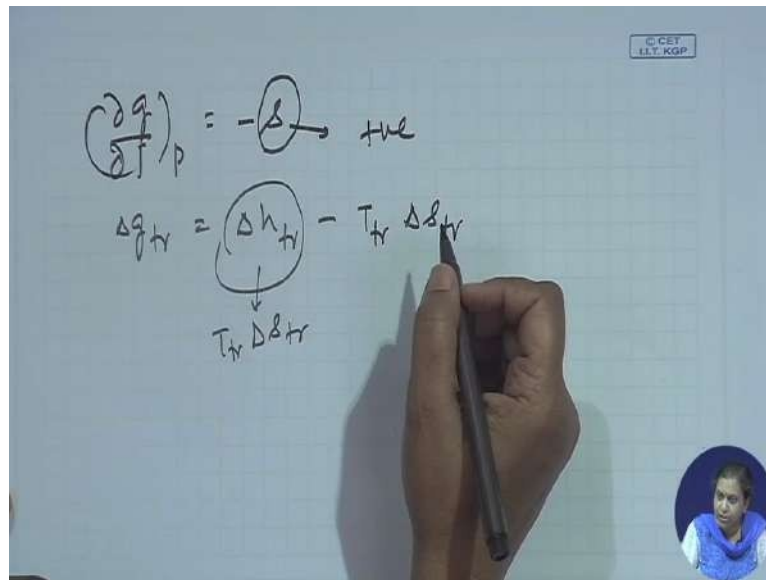 © CET
I.I.T. KGP
(∂g/∂T)p = -s → +ve
Δg tr = Δh tr - T tr Δs tr
T tr Δs tr